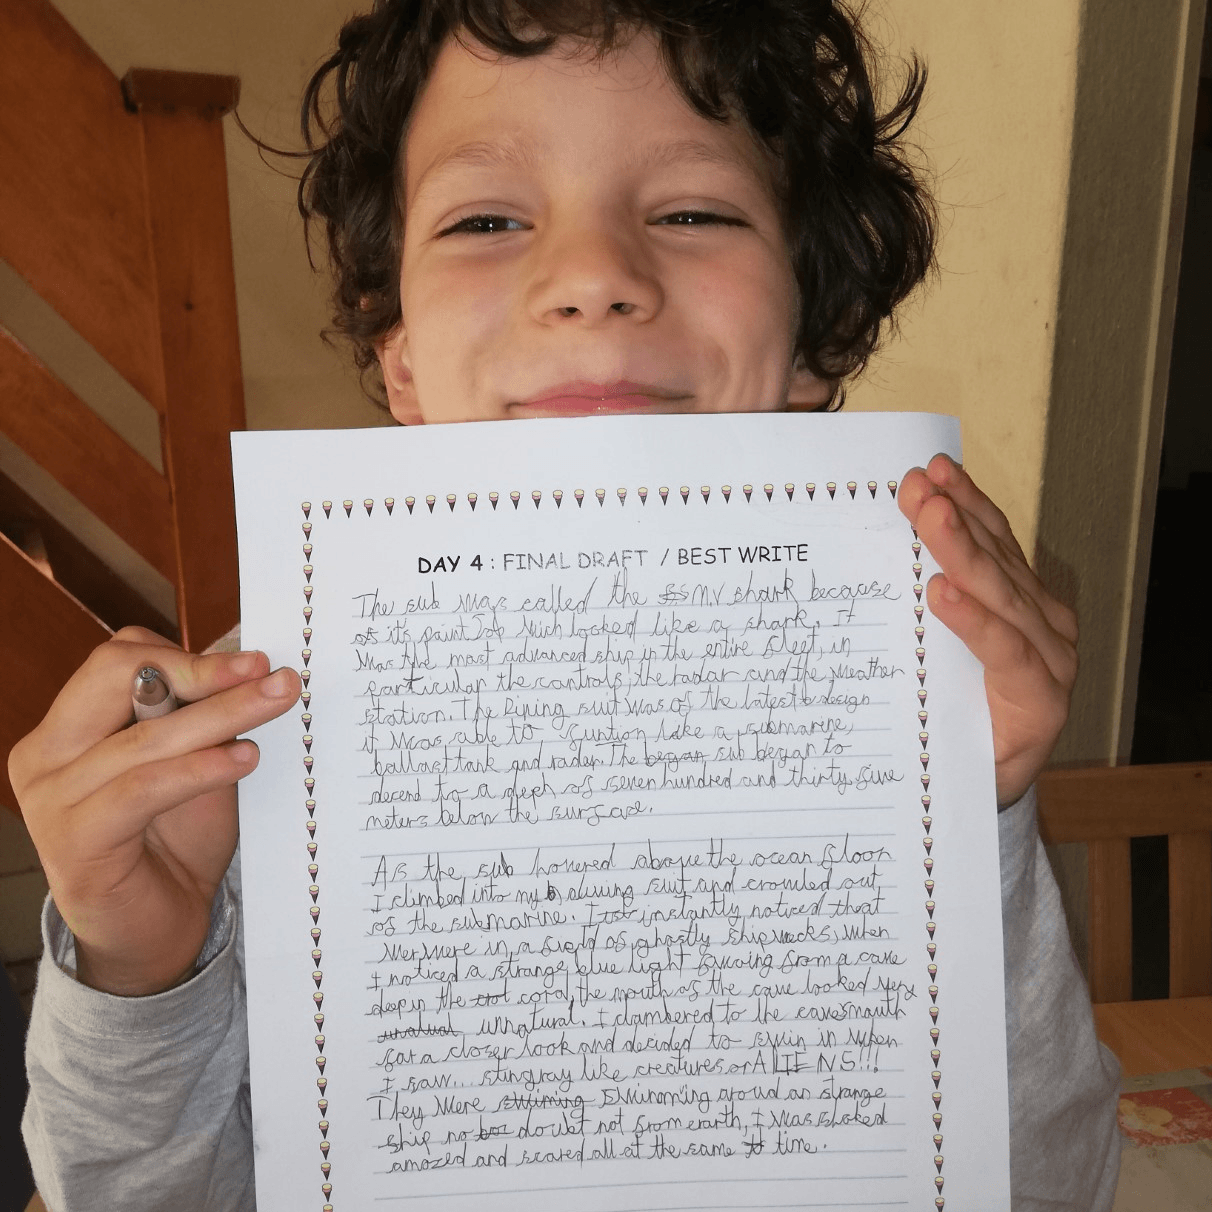 DAY 4 : FINAL DRAFT / BEST WRITE
The sub was called the M.V shark because
of its paint Job wich looked like a shark. It
was the most advanced ship in the entire fleet, in
particular the controls, the radar and the weather
station. The Diving suit was of the latest design
it was able to function like a submarine,
ballast tank and radar. The began sub began to
decend to a deph of seven hundred and thirty five
meters below the surface.
As the sub hovered above the ocean floor
I climbed into my diving suit and crowled out
of the submarine. I instantly noticed that
we were in a field of ghostly shipwrecks, when
I noticed a strange blue light glowing from a cave
deep in the coral, the mouth of the cave looked very
unnatural. I clambered to the caves mouth
for a closer look and decided to swim in when
I saw... stingray like creatures or ALIENS!!!
They were swiming swimming around an strange
ship no doubt not from earth, I was shoked
amazed and scared all at the same time.